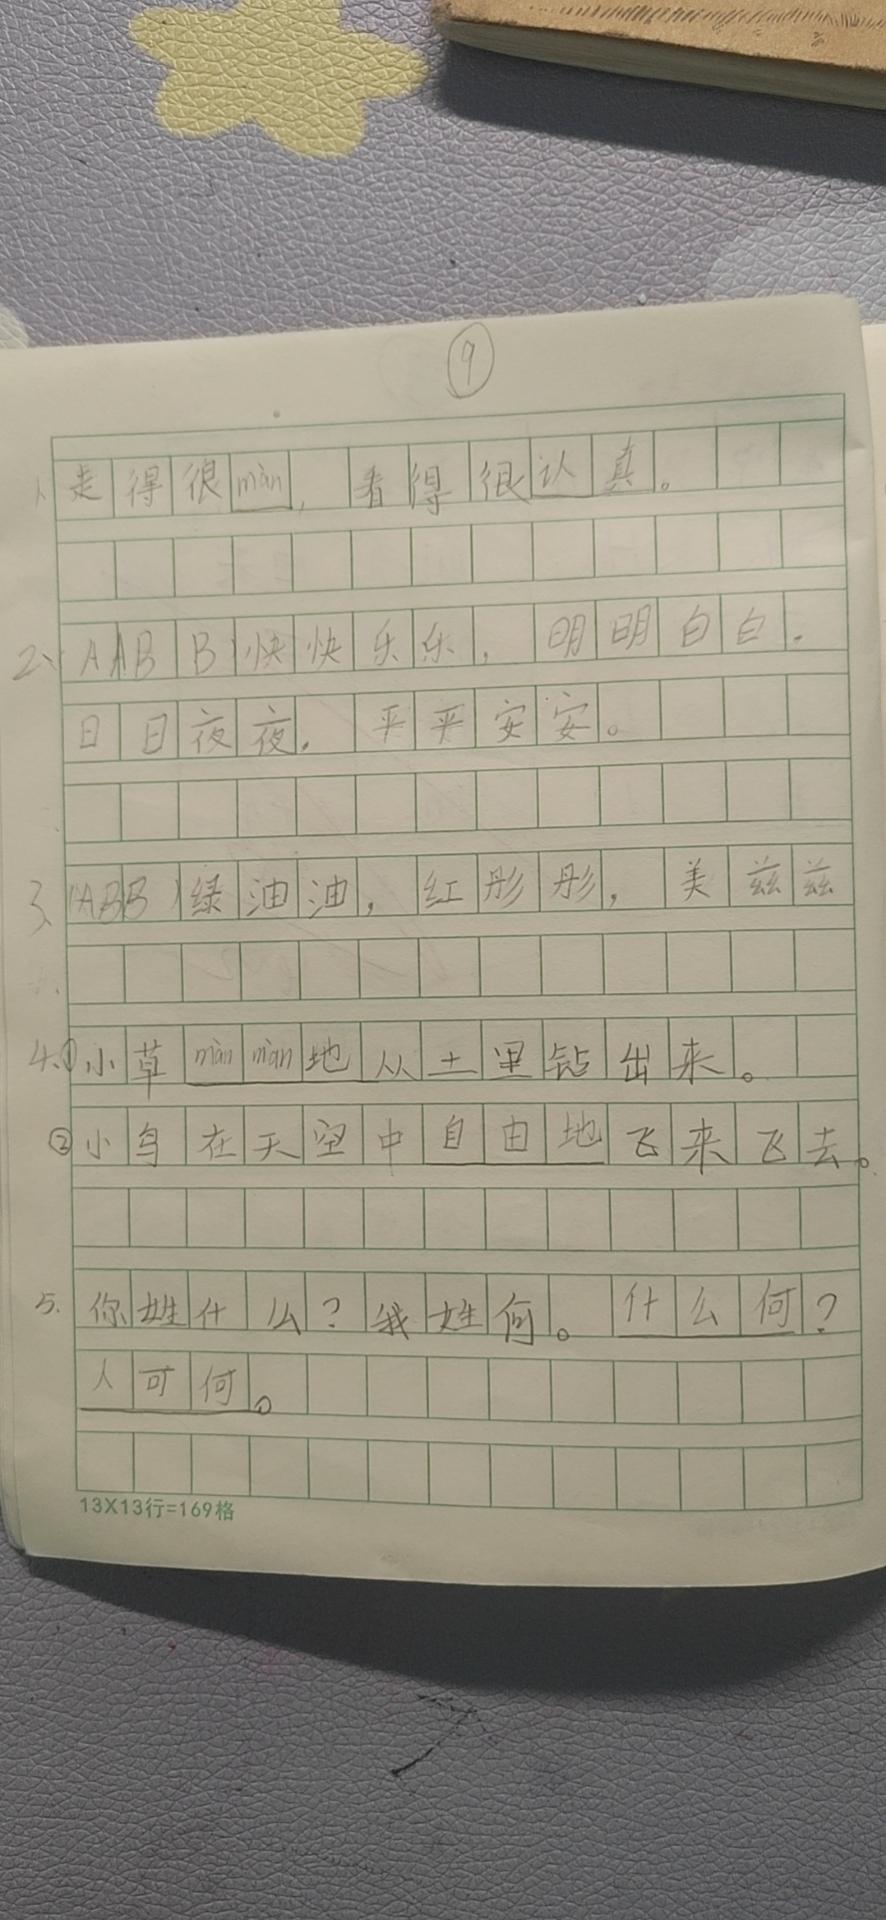 9
1、走得很màn，看得很认真。
2、AABB快快乐乐，明明白白.
日日夜夜.平平安安。
3、(ABB)绿油油，红彤彤，美兹兹
4、①小草màn màn地从土里钻出来。
②小鸟在天空中自由地飞来飞去。
5.你姓什么？我姓何。什么何？
人可何。
13X13行=169格